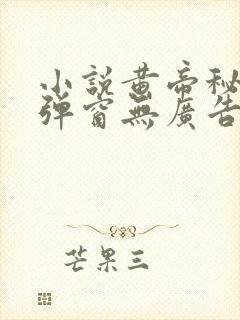 小說黃帝秘
彈窗無廣告
芒果三